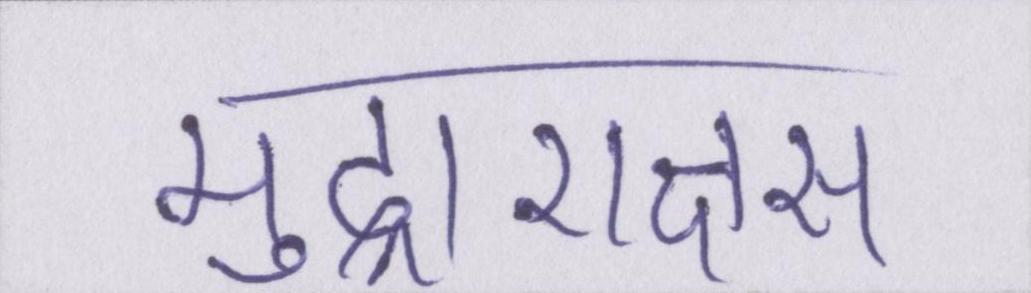 मुद्राराक्षस